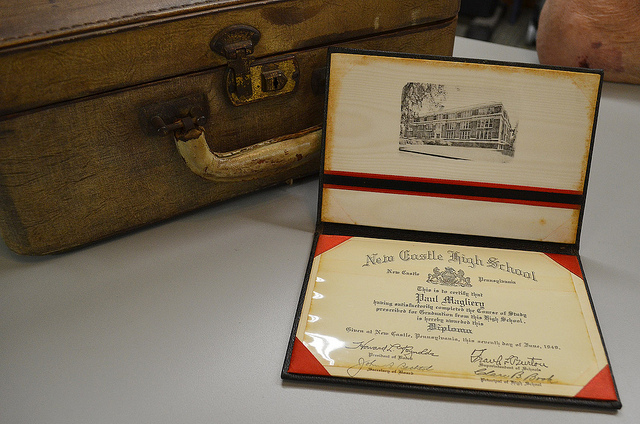 New Castle High School
New Castle Pennsylvania
This is to certify that
Paul Magliery
having satisfactorily completed the Course of Study
prescribed for Graduation from this High School,
is hereby awarded this
Diploma
Given at New Castle, Pennsylvania, this seventh day of June, 1948.
President of Board
Frank L. Burton
Superintendent of Schools
Secretary of Board
Principal of High School